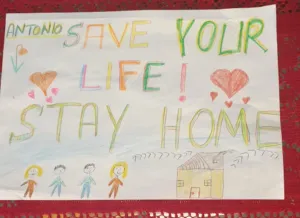 ANTONIO
SAVE YOUR
LIFE!
STAY HOME